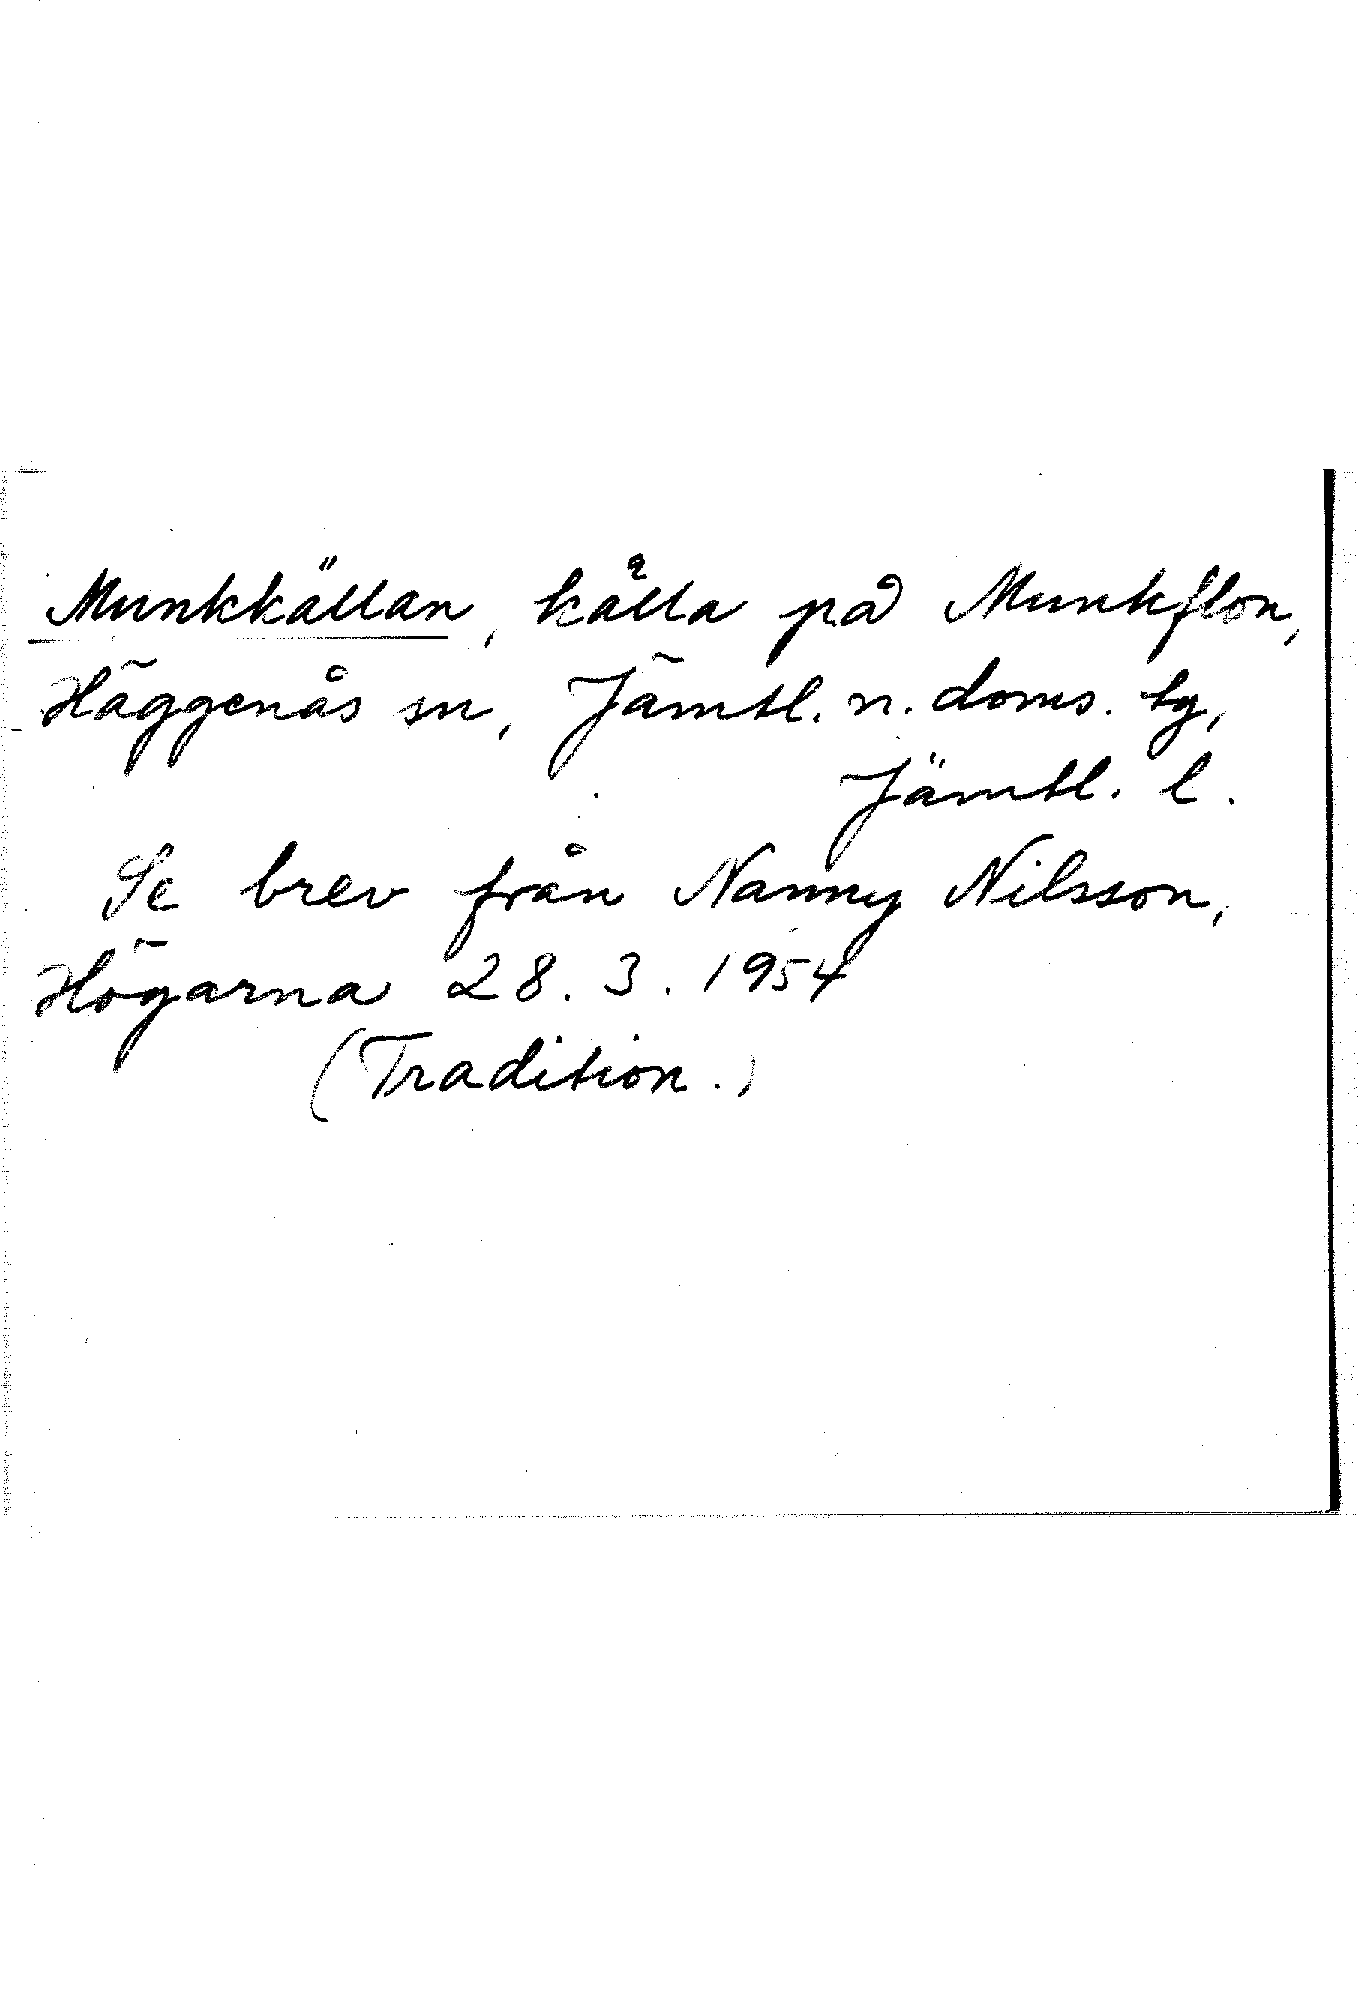 Munkkällan, källa på Munkflon,
Häggenås sn, Jämtl. n. doms. tg,
Jämtl. l.
Se brev från Nanny Nilsson,
Högarna 28.3.1954
(Tradition.)